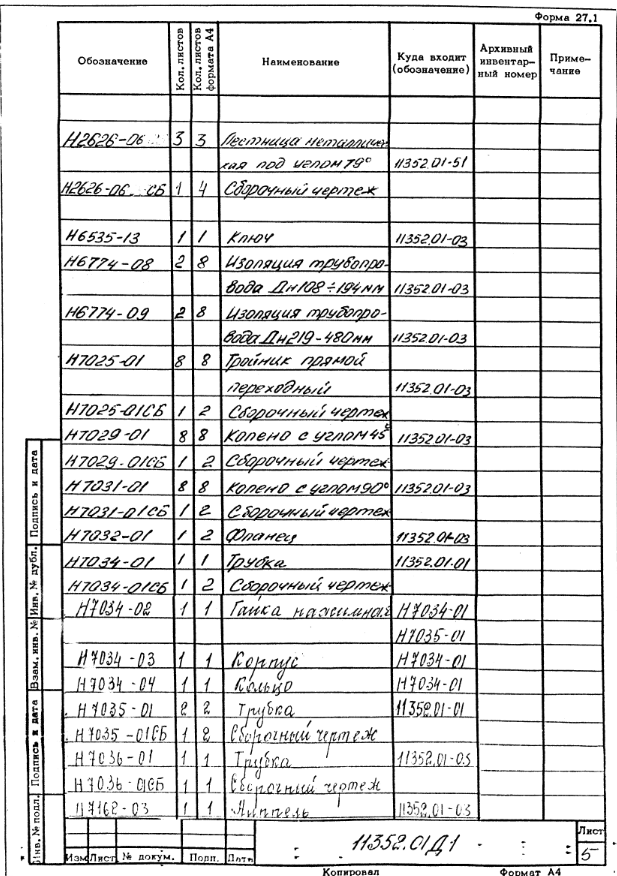 Форма 27.1
Обозначение Кол. листов Кол. листов формата А4 Наименование Куда входит (обозначение) Архивный инвентарный номер Примечание
Н2626-06 3 3 Лестница металличес-
кая под углом 79° 11352.01-51
Н2626-06 СБ 1 4 Сборочный чертеж
Н6535-13 1 1 Ключ 11352.01-03
Н6774-08 2 8 Изоляция трубопро-
вода Дн108÷194мм 11352.01-03
Н6774-09 2 8 Изоляция трубопро-
вода Дн219-480мм 11352.01-03
Н7025-01 8 8 Тройник прямой
переходный 11352.01-03
Н7025-01СБ 1 2 Сборочный чертеж
Н7029-01 8 8 Колено с углом 45° 11352.01-03
Н7029-01СБ 1 2 Сборочный чертеж
Н7031-01 8 8 Колено с углом 90° 11352.01-03
Н7031-01СБ 1 2 Сборочный чертеж
Н7032-01 1 2 Фланец 11352.01-03
Н7034-01 1 1 Трубка 11352.01.01
Н7034-01СБ 1 2 Сборочный чертеж
Н7034-02 1 1 Гайка нажимная Н7034-01
Н7035-01
Н7034-03 1 1 Корпус Н7034-01
Н7034-04 1 1 Кольцо Н7034-01
Н7035-01 2 2 Трубка 11352.01-01
Н7035-01СБ 1 2 Сборочный чертеж
Н7036-01 1 1 Трубка 11352.01-03
Н7036-01СБ 1 1 Сборочный чертеж
Н7162-03 1 1 Ниппель 11352.01-03
Инв. № подл. Подпись и дата Взам. инв. № Инв. № дубл. Подпись и дата
11352.01Д1
Лист
5
Изм Лист № докум. Подп. Дата
Копировал Формат А4